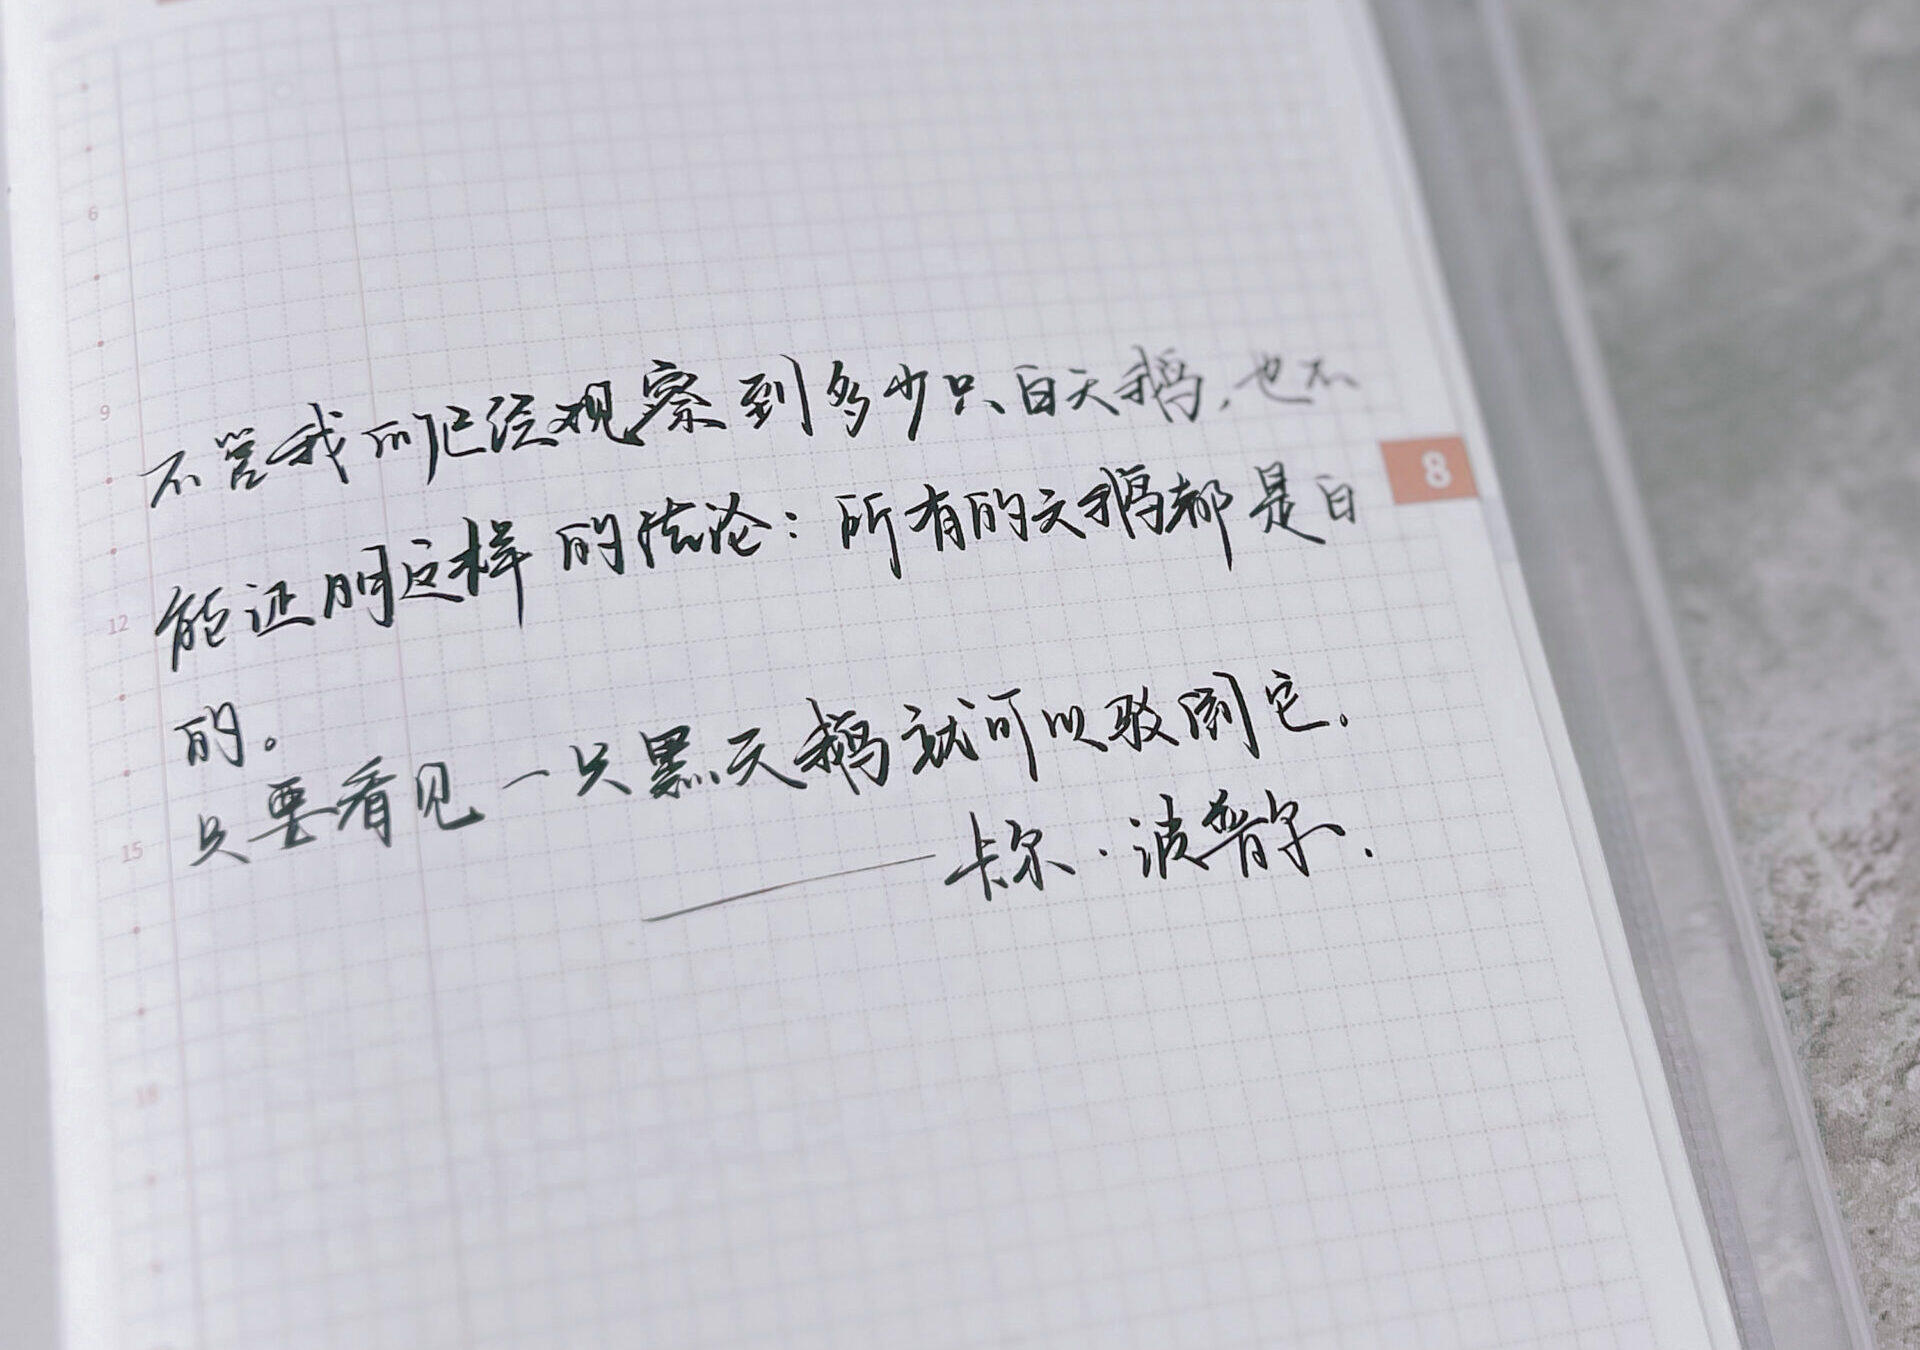 6
9
不管我们已经观察到多少只白天鹅，也不
8
能证明这样的结论：所有的天鹅都是白
12
的。
只要看见一只黑天鹅就可以驳倒它.
15
——卡尔·波普尔.
18